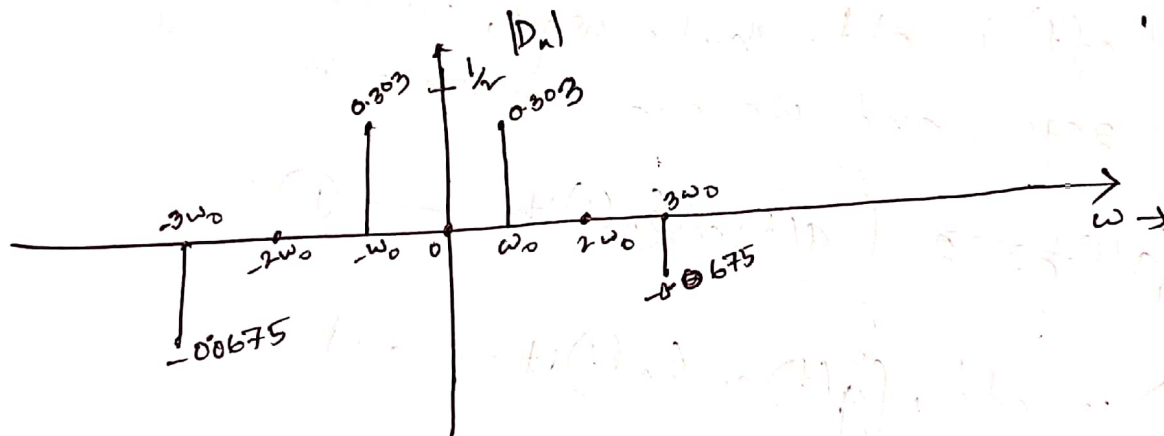 |Dₙ|
1/2
0.303
0.303
-3ω₀
-2ω₀
-ω₀
0
ω₀
2ω₀
3ω₀
ω →
-0.0675